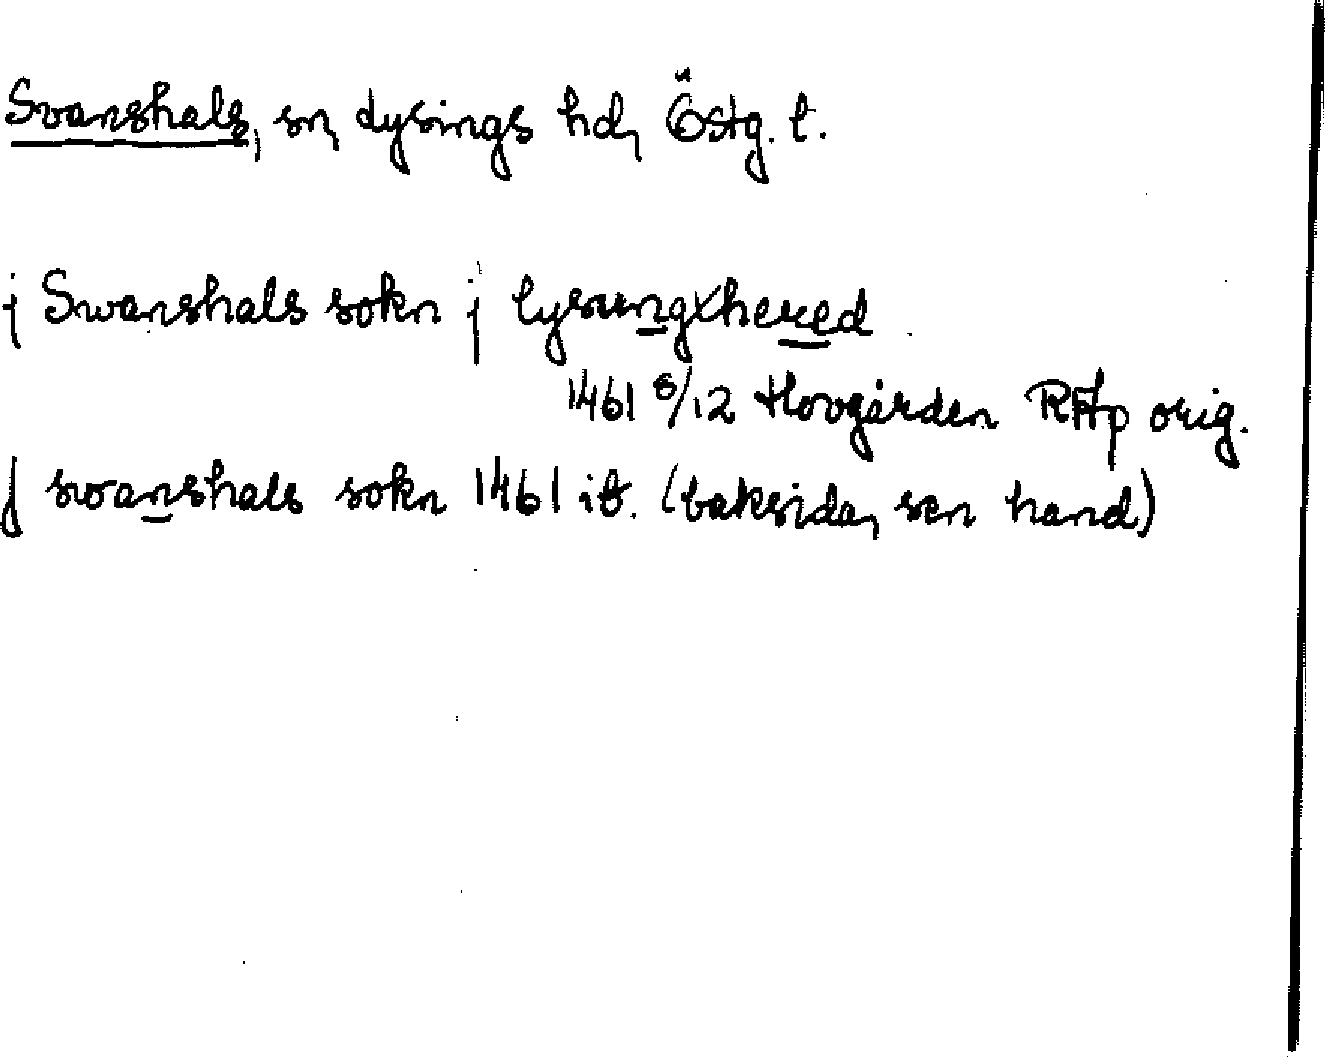 Svanshals, sn, Lysings hd, Östg. l.
j Swanshals sokn j lysungxhered
1461 8/12 Hovgården RAp orig.
J swanshals sokn 1461 ib. (baksida, sen hand)